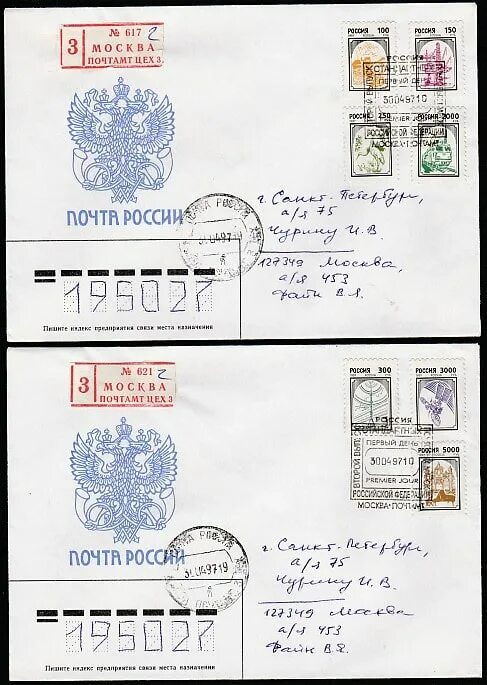 № 617 2
3
МОСКВА
ПОЧТАМТ ЦЕХ 3
РОССИЯ 100
РОССИЯ 150
РОССИЯ
СТАНДАРТНЫХ
ПЕРВЫЙ ДЕНЬ
30049710
PREMIER JOUR
250
2000
РОССИЙСКОЙ ФЕДЕРАЦИИ
МОСКВА-ПОЧТАМТ
ПОЧТА РОССИИ
ПОЧТА РОССИИ
г. Санкт-Петербург,
а/я 75
Чурину И. В.
127349 Москва,
а/я 453
Файн В.Я.
195027
Пишите индекс предприятия связи места назначения
№ 621 2
3
МОСКВА
ПОЧТАМТ ЦЕХ 3
РОССИЯ 300
РОССИЯ 3000
РОССИЯ
СТАНДАРТНЫХ
ПЕРВЫЙ ДЕНЬ
ВТОРОЙ ВЫПУСК
30049710
PREMIER JOUR
РОССИЯ 5000
РОССИЙСКОЙ ФЕДЕРАЦИИ
МОСКВА-ПОЧТАМТ
ПОЧТА РОССИИ
ПОЧТА РОССИИ
г. Санкт-Петербург,
а/я 75
Чурину И. В.
127349 Москва
а/я 453
Файн В.Я.
195027
Пишите индекс предприятия связи места назначения